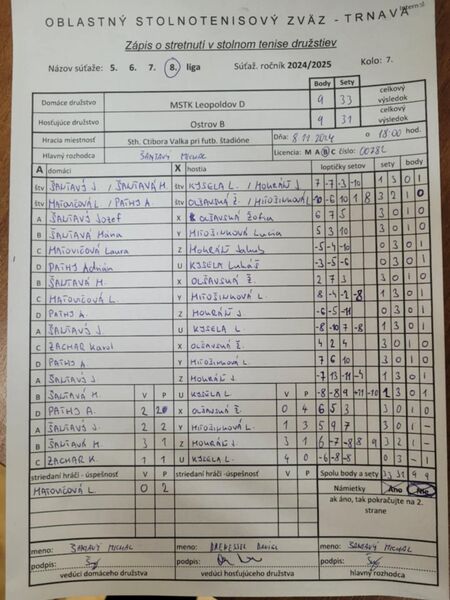 OBLASTNÝ STOLNOTENISOVÝ ZVÄZ - TRNAVA
Zápis o stretnutí v stolnom tenise družstiev
Názov súťaže: 5. 6. 7. 8. liga Súťaž. ročník 2024/2025 Kolo: 7.
Body Sety
Domáce družstvo MSTK Leopoldov D 9 33 celkový výsledok
Hosťujúce družstvo Ostrov B 9 31 celkový výsledok
Hracia miestnosť Sth. Ctibora Valka pri futb. štadióne Dňa: 8.11.2024 o 18:00 hod.
Hlavný rozhodca ŠANTAVÝ MICHAL Licencia: M A B C číslo:
A domáci X hostia loptičky setov sety body
štv ŠANTAVÝ J. / ŠANTAVÁ H. štv KYSELA L. / MOKRÁŇ J. 7 -7 -3 -10 1 3 0 1
štv MATOVIČOVÁ L. / PATHY A. štv OLŠAVSKÁ Ž. / MITOŠINKOVÁ L. -10 -6 10 1 8 3 2 1 0
A ŠANTAVÝ Jozef X OLŠAVSKÁ Žofia 6 7 5 3 0 1 0
B ŠANTAVÁ Hana Y MITOŠINKOVÁ Lucia 5 3 10 3 0 1 0
C MATOVIČOVÁ Laura Z MOKRÁŇ Jakub -5 -4 -10 0 3 0 1
D PATHY Adrián U KYSELA Lukáš -3 -5 -6 0 3 0 1
B ŠANTAVÁ H. X OLŠAVSKÁ Ž. 2 7 3 3 0 1 0
C MATOVIČOVÁ L. Y MITOŠINKOVÁ L. 8 -4 -2 -8 1 3 0 1
D PATHY A. Z MOKRÁŇ J. -6 -5 -11 0 3 0 1
A ŠANTAVÝ J. U KYSELA L. -8 -10 7 -8 1 3 0 1
C ZACHAR Karol X OLŠAVSKÁ Ž. 4 2 4 3 0 1 0
D PATHY A Y MITOŠINKOVÁ L. 7 6 10 3 0 1 0
A ŠANTAVÝ J. Z MOKRÁŇ J -7 13 -11 -4 1 3 0 1
B ŠANTAVÁ H. V P U KYSELA L. V P -8 -8 9 -10 3 0 1
D PATHY A. 2 2 X OLŠAVSKÁ Ž. 0 4 6 5 3 3 0 1
A ŠANTAVÝ J. 2 2 Y MITOŠINKOVÁ L. 1 3 5 9 7 3 0 1
B ŠANTAVÁ H. 3 1 Z MOKRÁŇ J. 3 1 6 -7 -8 8 9 3 2 1
C ZACHAR K. 1 1 U KYSELA L. 4 0 -6 -8 -8 0 3 1
striedaní hráči - úspešnosť V P striedaní hráči - úspešnosť V P Spolu body a sety 33 31 9 9
MATOVIČOVÁ L. 0 2 Námietky Áno Nie
ak áno, tak pokračujte na 2. strane
meno: ŠANTAVÝ MICHAL meno: meno: ŠANTAVÝ MICHAL
podpis: podpis: podpis:
vedúci domáceho družstva vedúci hosťujúceho družstva hlavný rozhodca